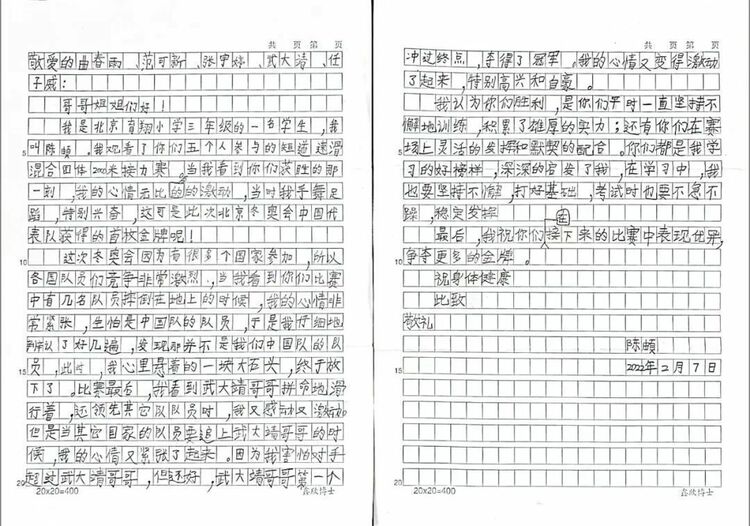 共 页 第 页
敬爱的曲春雨、范可新、张宇婷、武大靖、任
子威:
哥哥姐姐们好!
我是北京育翔小学三年级的一名学生,我
叫陈頔。我观看了你们五个人参与的短道速滑
混合团体2000米接力赛。当我看到你们获胜的那
一刻,我的心情无比的的激动,当时我手舞足
蹈,特别兴奋,这可是此次北京冬奥会中国代
表队获得的首枚金牌呢!
这次冬奥会因为有很多个国家参加,所以
各国队员们竞争非常激烈.当我看到你们比赛
中有几名队员摔倒在地上的时候,我的心情非
常紧张,生怕是中国队的队员,于是我仔细地
确认了好几遍,发现那并不是我们中国队的队
员,此时,我心里悬着的一块大石头,终于放
下了。比赛最后,我看到武大靖哥哥拼命地滑
行着,还领先其它队队员时,我又感动又激动.
但是当其它国家的队员要追上武大靖哥哥的时
候,我的心情又紧张了起来。因为我害怕对手
超过武大靖哥哥,但还好,武大靖哥哥第一个
5
10
15
20
20×20=400
鑫欣博士
共 页 第 页
冲过终点,夺得了冠军。我的心情又变得激动
了起来,特别高兴和自豪。
我认为你们胜利,是你们平时一直坚持不
懈地训练,积累了雄厚的实力;还有你们在赛
场上灵活的发挥和默契的配合。你们都是我学
习的好榜样,深深的启发了我,在学习中,我
也要坚持不懈,打好基础,考试时也要不急不
躁,稳定发挥
最后,我祝你们在接下来的比赛中表现优异,
争夺更多的金牌。
祝身体健康
此致
敬礼
陈頔
2022年2月7日
5
10
15
20
20×20=400
鑫欣博士